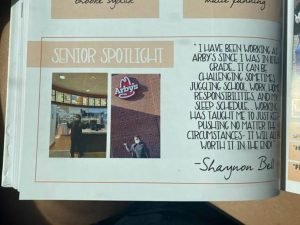 SENIOR SPOTLIGHT
Arby's
"I HAVE BEEN WORKING AT
ARBY'S SINCE I WAS IN 10TH
GRADE. IT CAN BE
CHALLENGING SOMETIMES
JUGGLING SCHOOL, WORK, HOME
RESPONSIBILITIES, AND MY
SLEEP SCHEDULE. WORKING
HAS TAUGHT ME TO JUST KEEP
PUSHING NO MATTER THE
CIRCUMSTANCES- IT WILL ALL BE
WORTH IT IN THE END!"
-Shaynon Bell